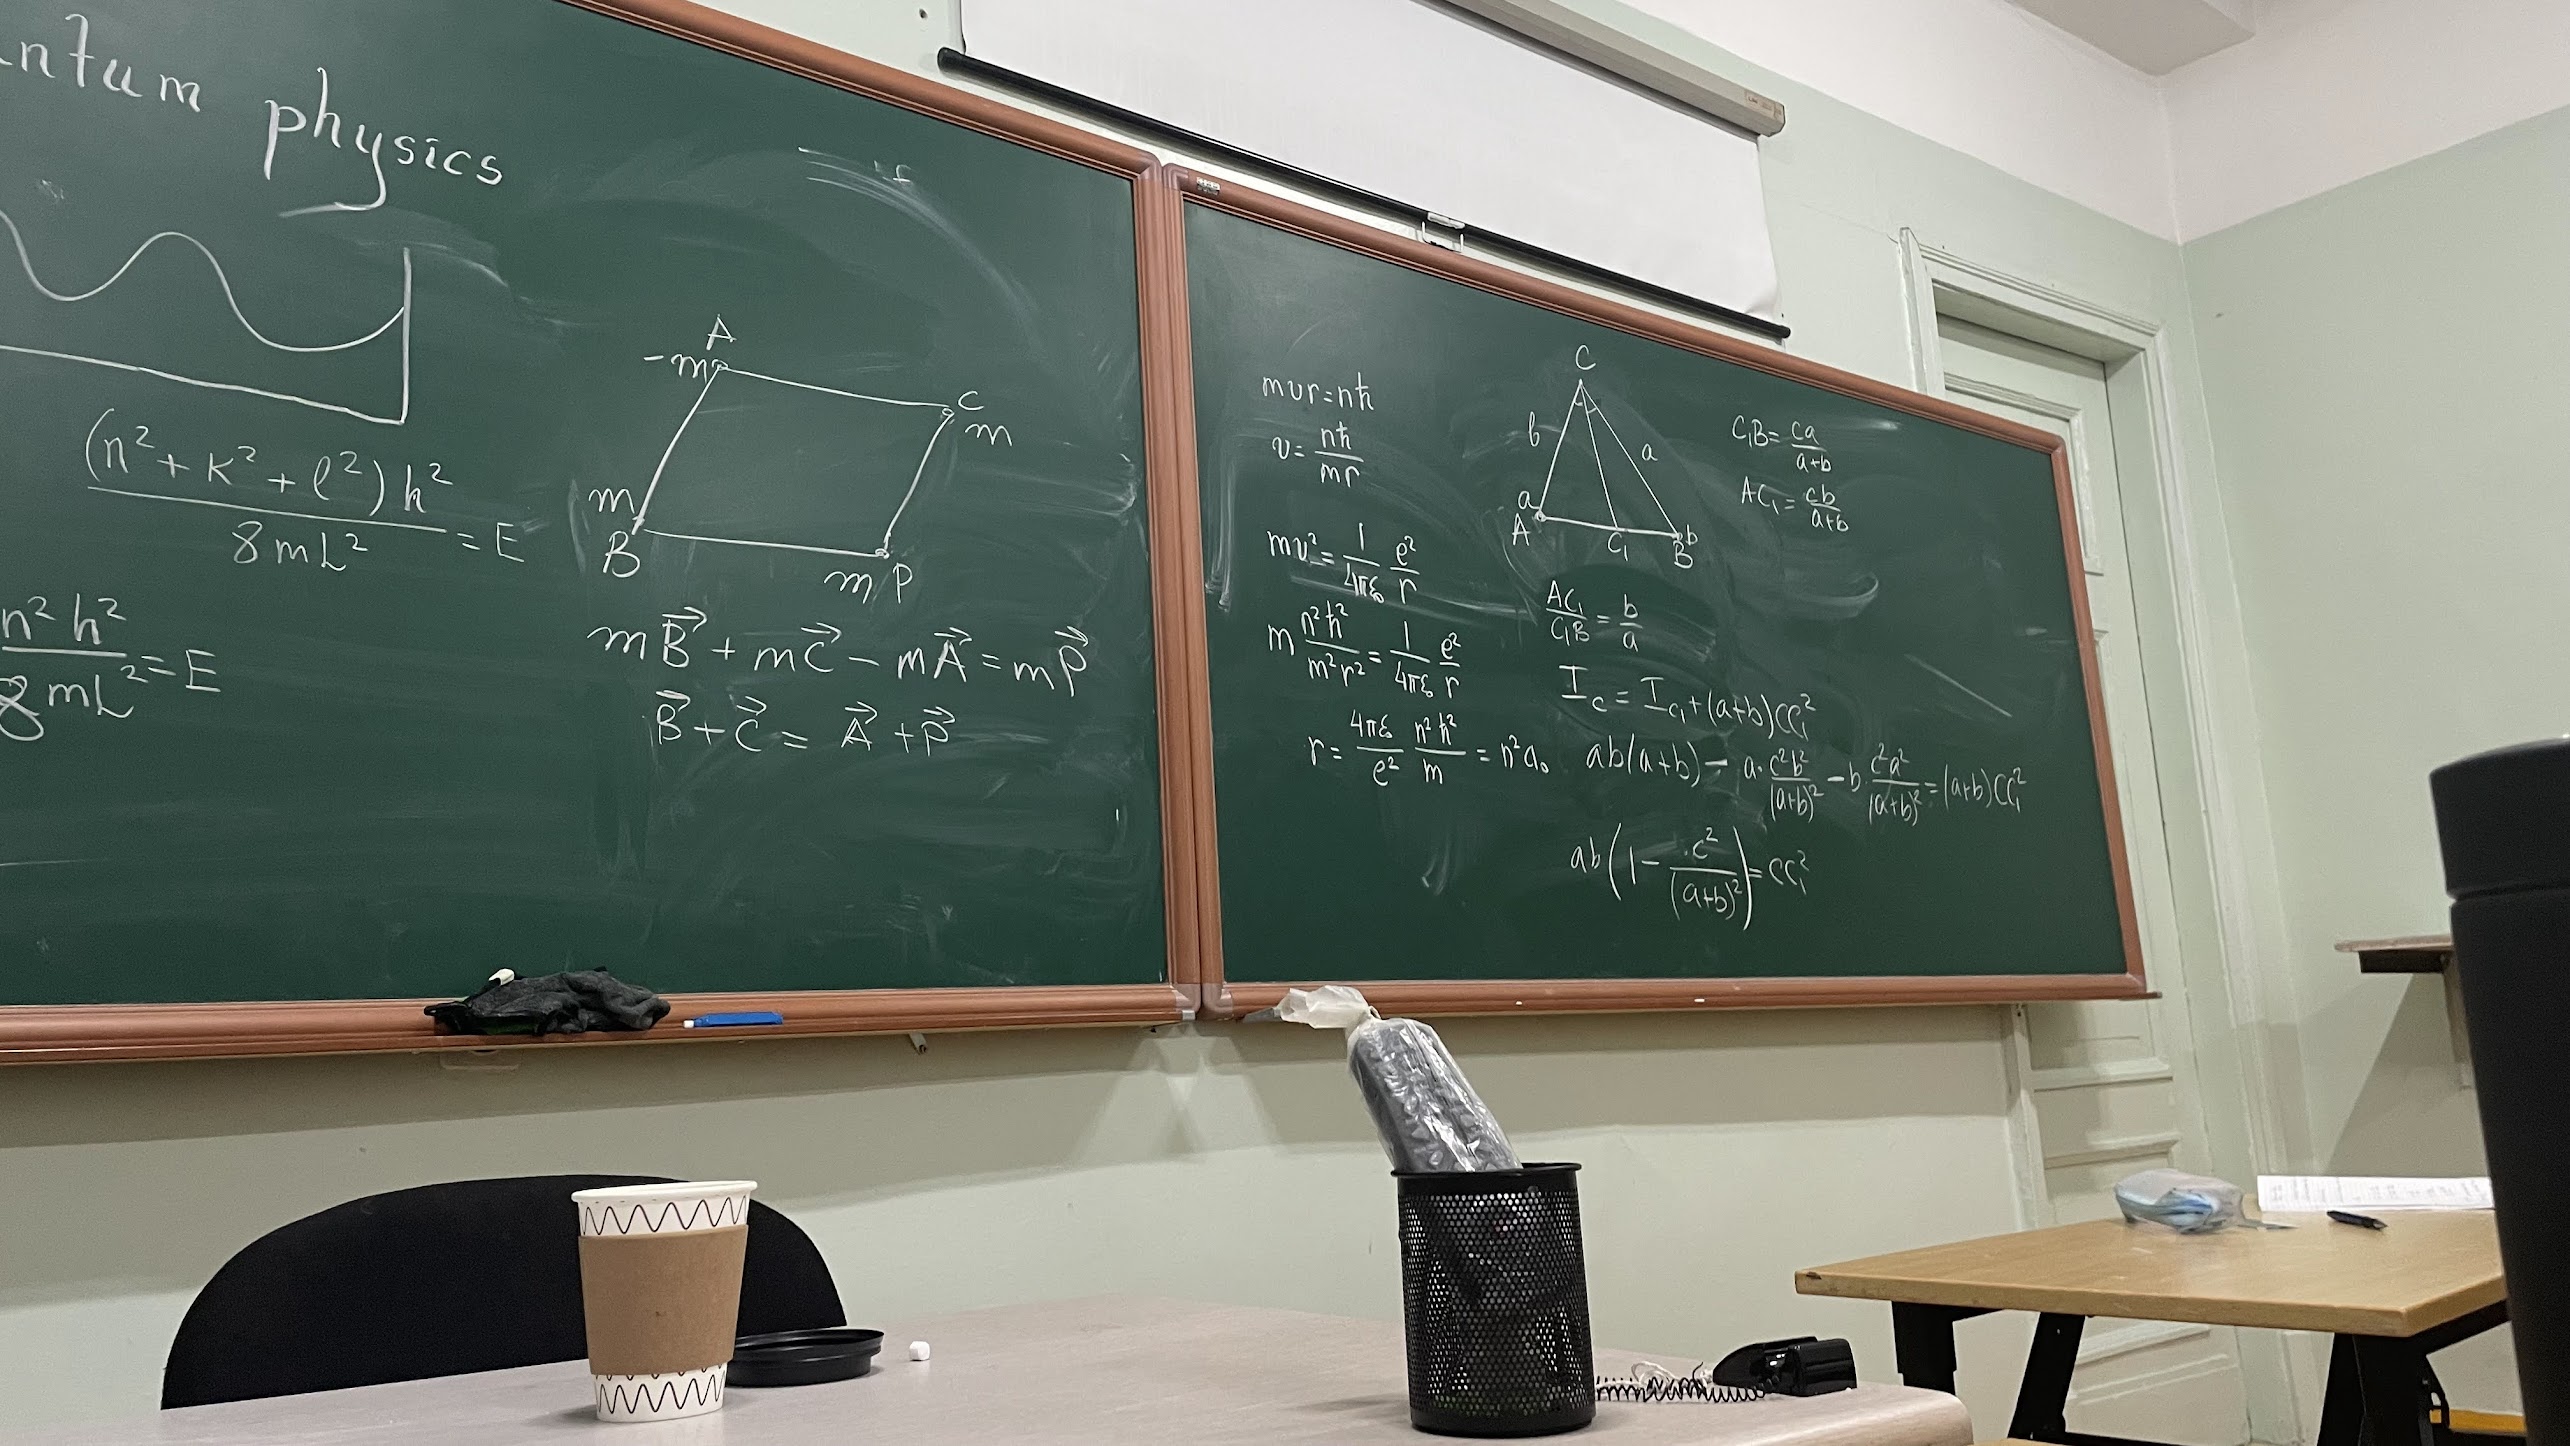 ntum physics
(n² + k² + l²) h² / 8mL² = E
n² h² / 8mL² = E
A
-m
C
m
m
B
m P
mB⃗ + mC⃗ - mA⃗ = mP⃗
B⃗ + C⃗ = A⃗ + P⃗
mvr = nħ
v = nħ / mr
mv² = 1/4πε₀ e²/r
m n²ħ²/m²r² = 1/4πε₀ e²/r
r = 4πε₀/e² n²ħ²/m = n²a₀
C
b
a
a
A
C₁
b
B
C₁B = ca / a+b
AC₁ = cb / a+b
AC₁ / C₁B = b / a
I_C = I_C₁ + (a+b)CC₁²
ab(a+b) - a · c²b²/(a+b)² - b · c²a²/(a+b)² = (a+b)CC₁²
ab(1 - c²/(a+b)²) = CC₁²